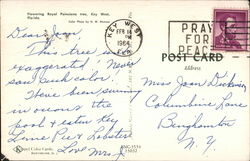 Flowering Royal Poinciana tree, Key West, Florida.
KEY WEST
FEB 14
1964
PRAY
FOR
PEACE
POST CARD
Address
Dear Joan,
This tree isn't
exaggerated. Never
saw such color.
We've been swimming
in ocean & the
pool & eatin Key
Lime Pie & Lobster
Love Mrs. J
Miss Joan Dickinson
Columbine Lane
Binghamton
N.Y.